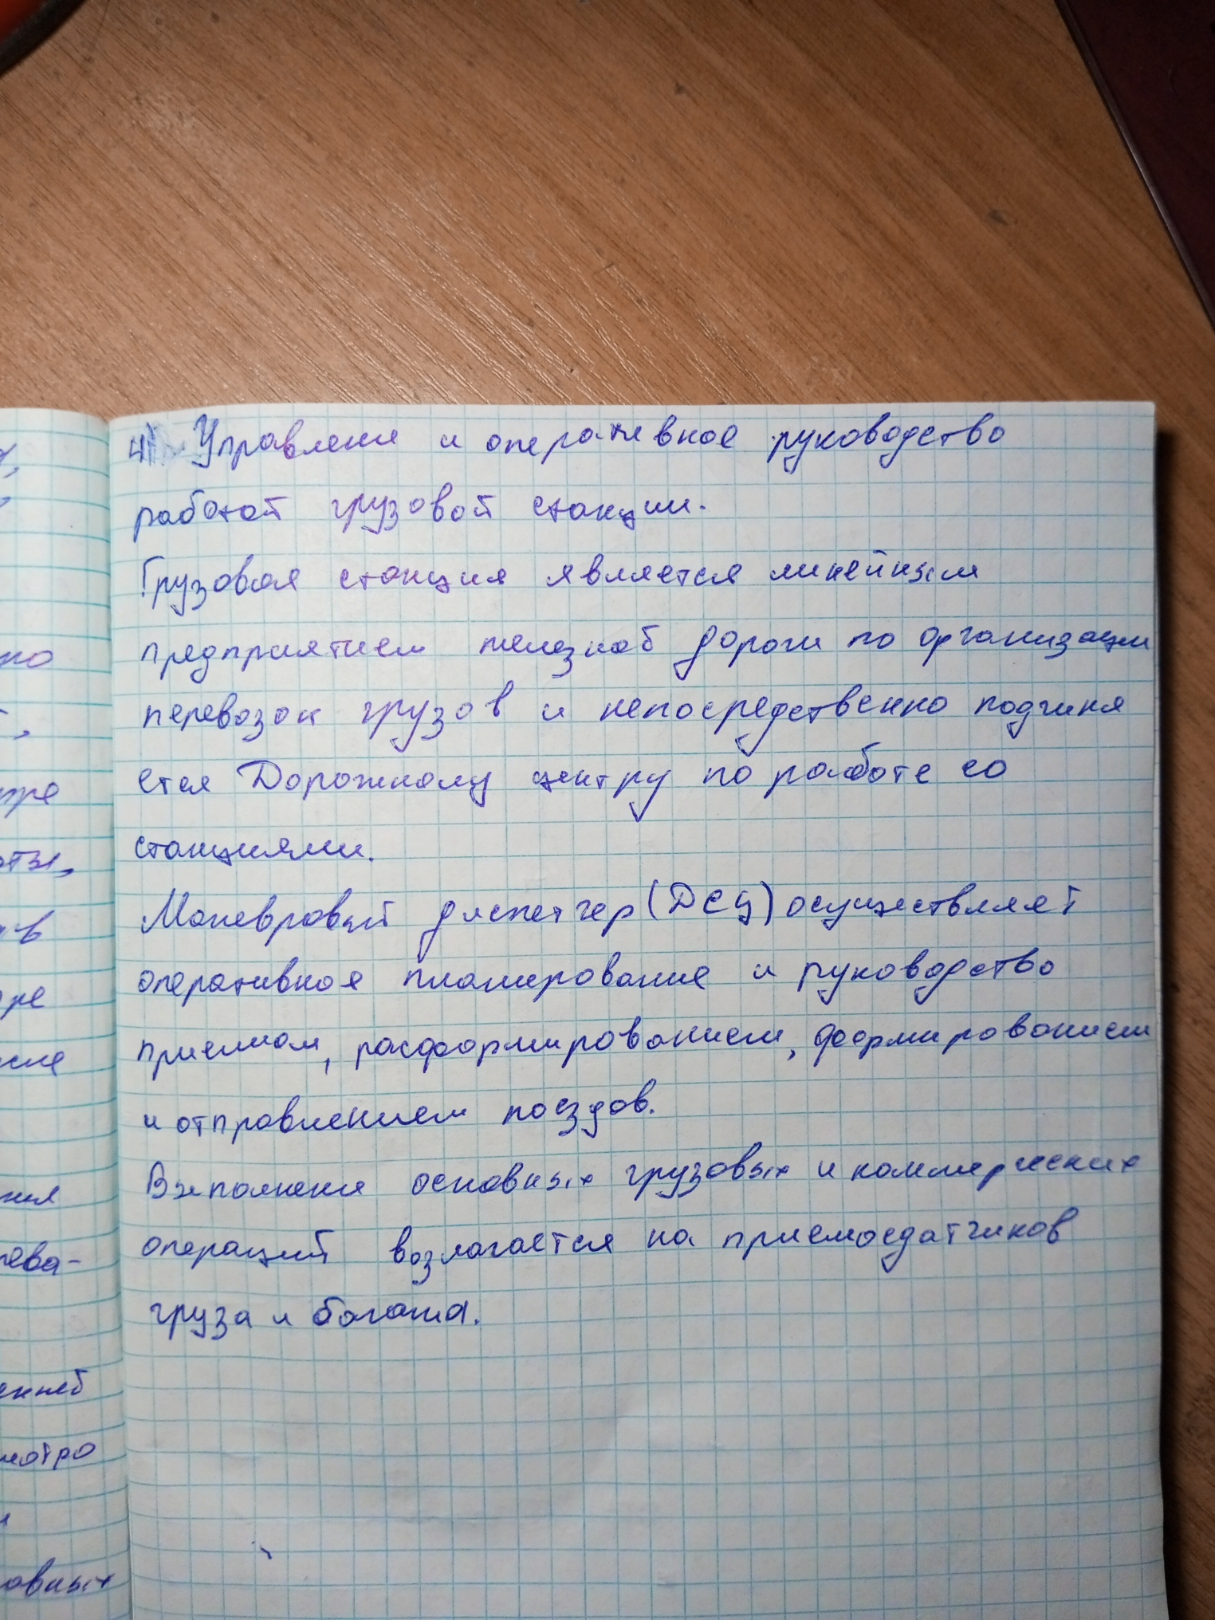 4) Управлени и оперативное руководство
работой грузовой станции.
Грузовая станция является линейным
предприятием железной дороги по организации
перевозок грузов и непосредственно подчиня
ется Дорожному центру по работе со
станциями.
Маневровый диспетчер (ДСЦ) осуществляет
оперативное планирование и руководство
приемом, расформированием, формированием
и отправлением поездов.
Выполнени основных грузовых и коммерческих
операций возлагается на приемосдатчиков
груза и багажа.